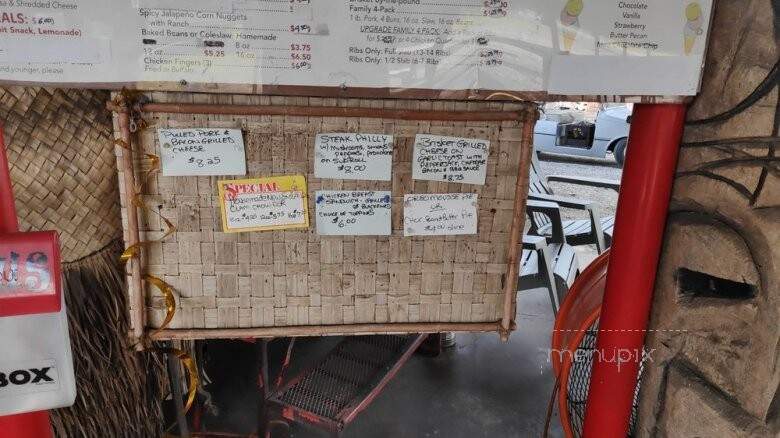 & Shredded Cheese
Snack, Lemonade)
younger, please
Spicy Jalapeño Corn Nuggets
with Ranch
Baked Beans or Coleslaw Homemade
8 oz $3.75
12 oz $5.25 16 oz $6.50
Chicken Fingers (3)
Fried or Buffalo
Family 4-Pack
1 lb. Pork, 4 Buns, 16 oz. Slaw, 16 oz. Beans
UPGRADE FAMILY 4 PACK
Ribs Only: Full Slab (13-14 Ribs)
Ribs Only: 1/2 Slab (6-7 Ribs)
Chocolate
Vanilla
Strawberry
Butter Pecan
Mint Chocolate Chip
PULLED PORK &
BACON GRILLED
CHEESE
$8.25
STEAK PHILLY
w/ MUSHROOMS, ONIONS
PEPPERS, PROVOLONE
ON SUB ROLL
BRISKET GRILLED
CHEESE ON
GARLIC TOAST WITH
PEPPERJACK, CHEDDAR
BACON & BBQ SAUCE
$8.75
SPECIAL
CLAM CHOWDER
CHICKEN BREAST
SANDWICH - GRILLED
OR BLACKENED
CHOICE OF TOPPINGS
6.00
OREO MOUSSE PIE
OR
CHOC PEANUT BUTTER PIE
BOX
menupix